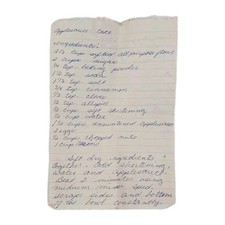 Applesauce Cake
Ingredients:
2 ½ cups sifted all purpose flour
2 cups sugar
¼ tsp baking powder
1 ½ tsp soda
1 ½ tsp salt
¾ tsp cinnamon
½ tsp cloves
½ tsp allspice
½ cup soft shortening
½ cup water
1 ½ cups unsweetened applesauce
2 eggs
½ cup chopped nuts
1 cup raisins
Sift dry ingredients
together. Add shortening,
water and applesauce.
Beat 2 minutes using
medium mixer speed,
scrape sides and bottom
of the bowl constantly.